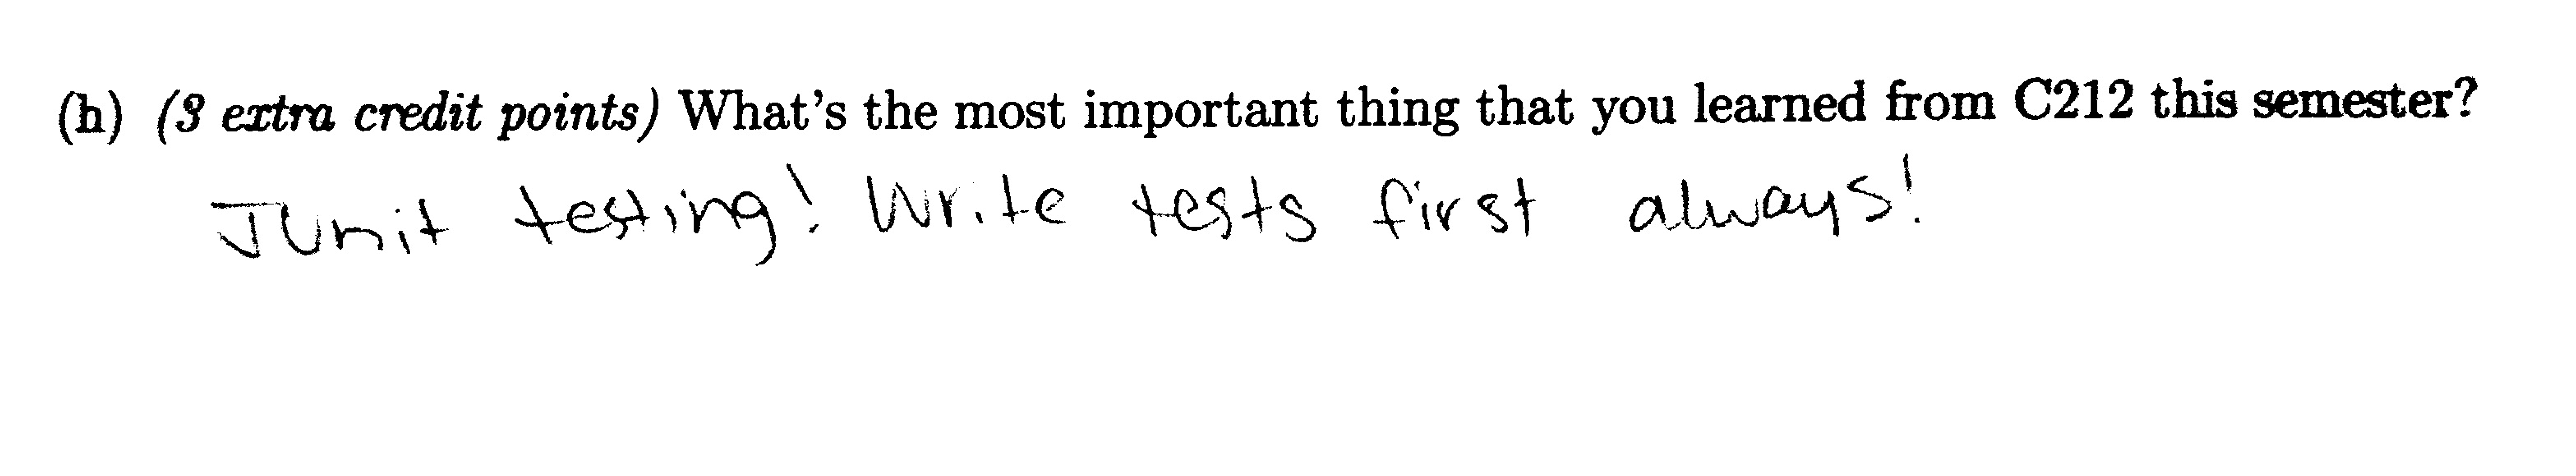 (h) (3 extra credit points) What's the most important thing that you learned from C212 this semester?
JUnit testing! Write tests first always!